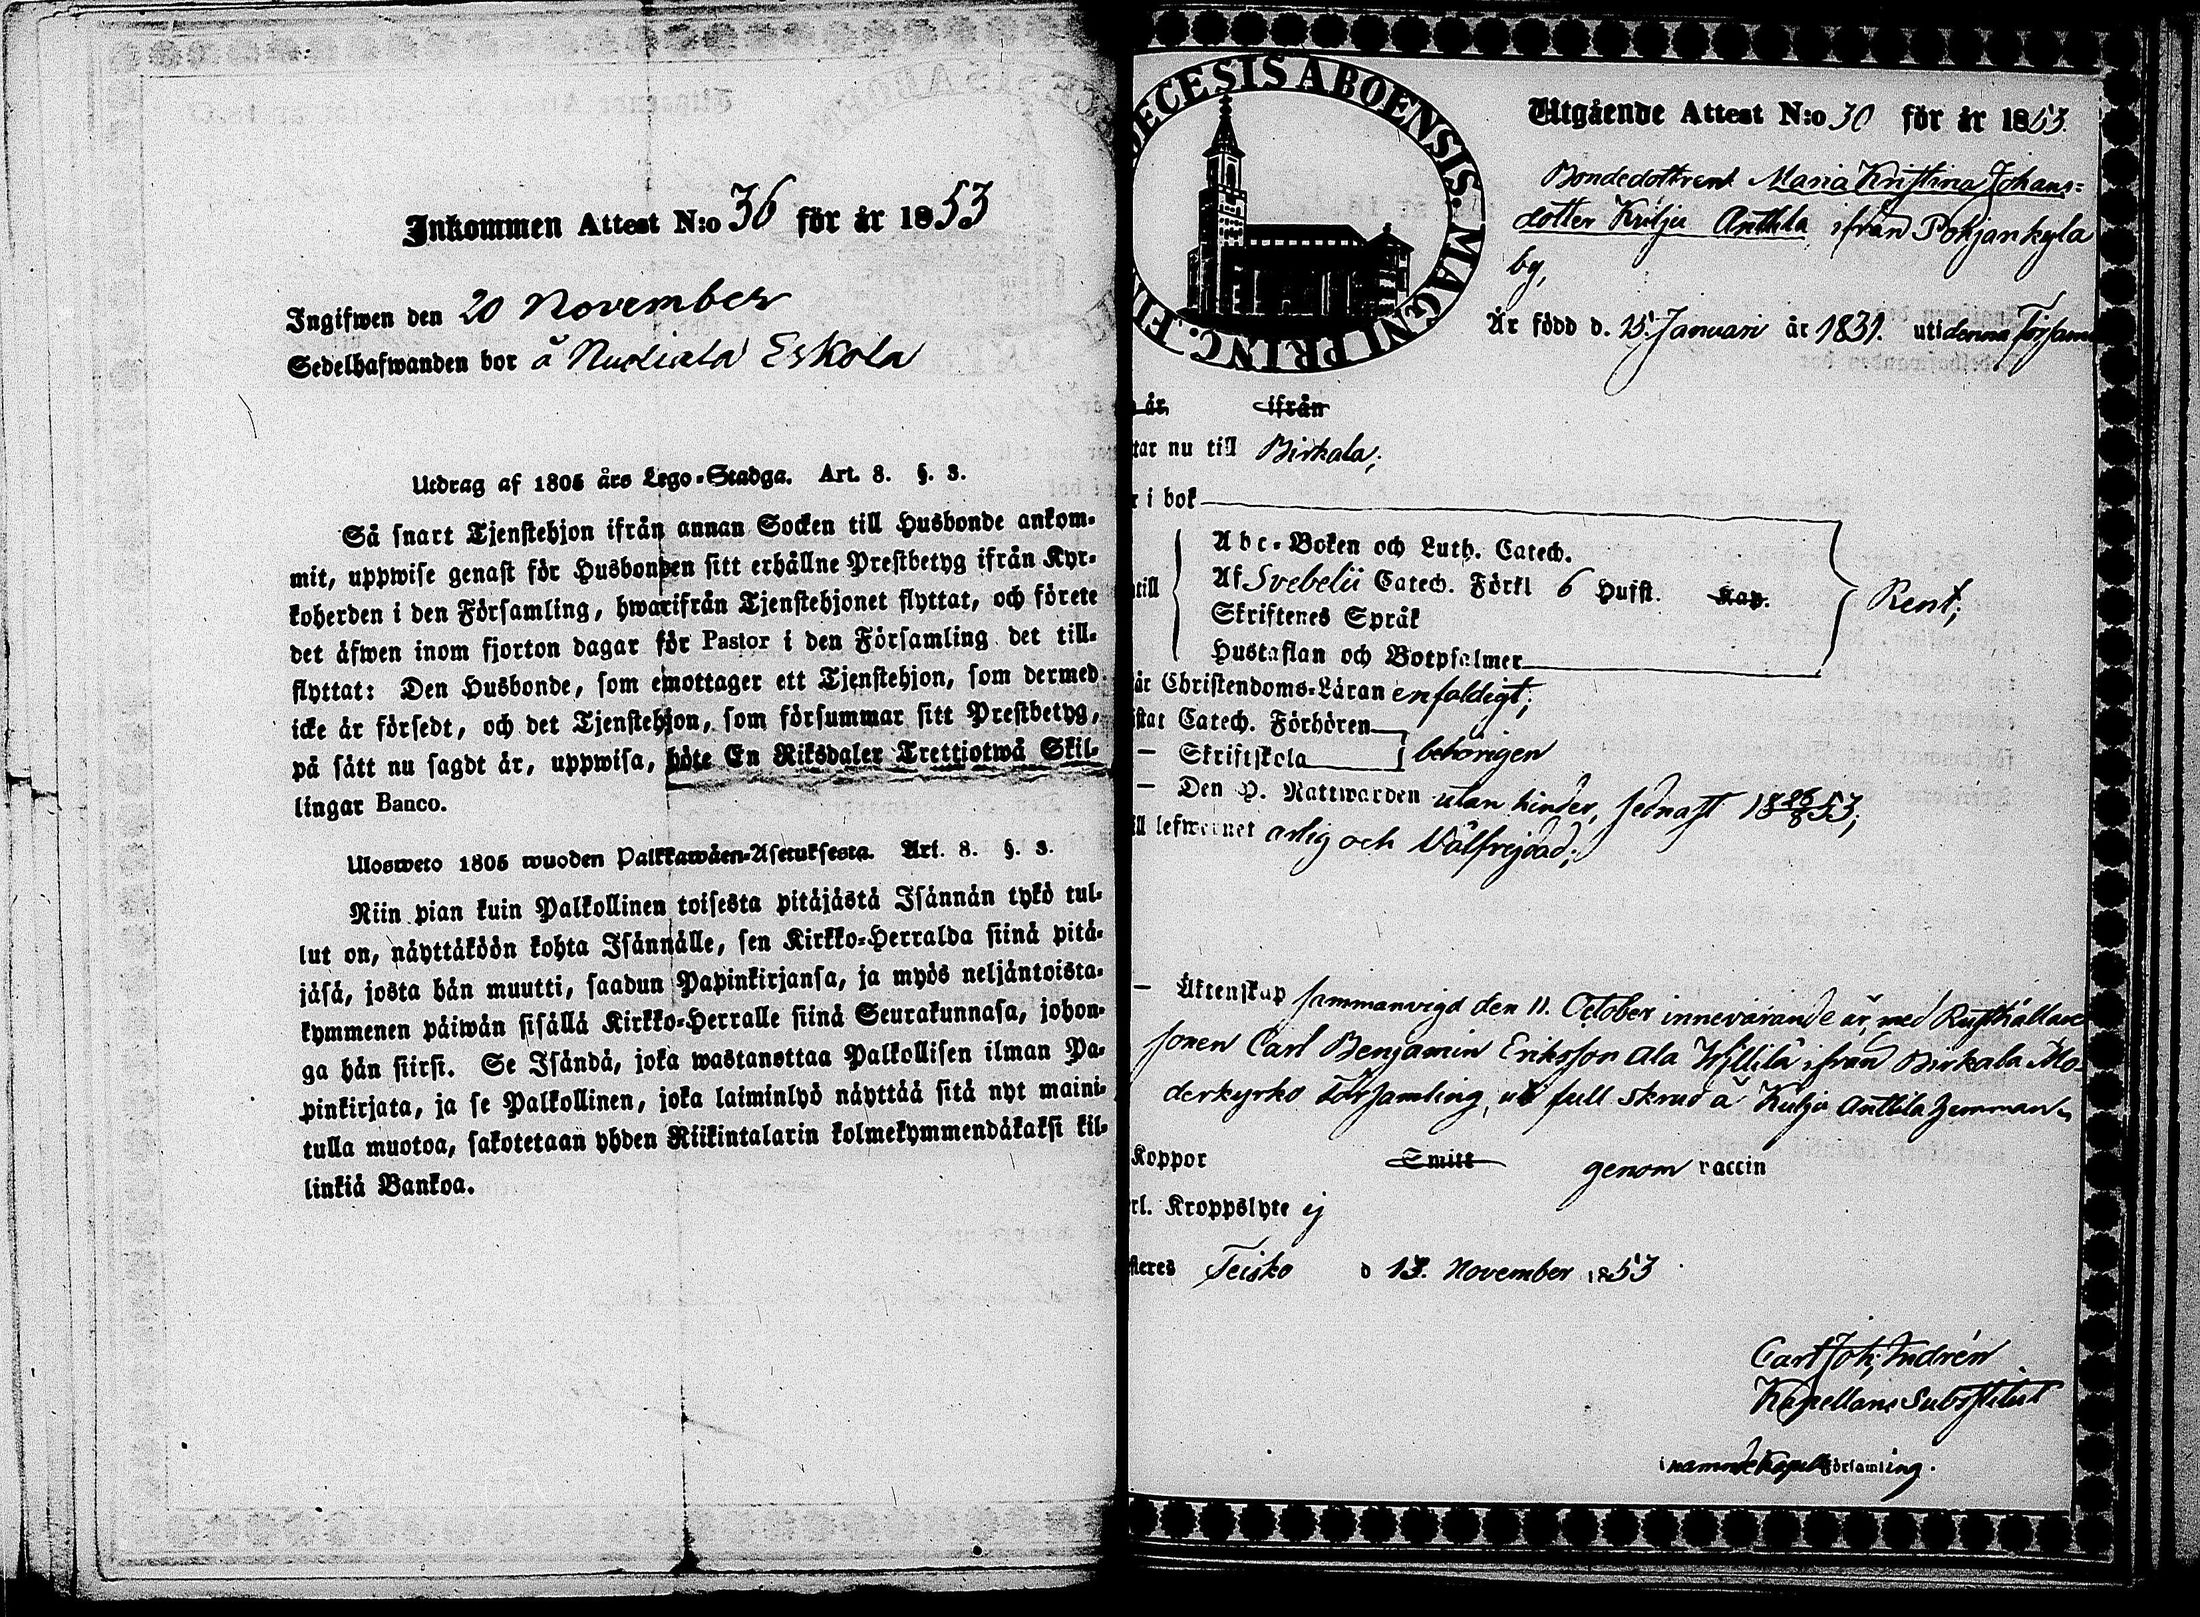 Inkommen Attest N:o 36 för år 1853
Ingifwen den 20 November
Sedelhafwanden bor å Nuoliala Eskola
Utdrag af 1805 års Lego-Stadga. Art. 8. §. 3.
Så snart Tjenstehjon ifrån annan Socken till Husbonde ankom-
mit, uppwise genast för Husbonden sitt erhållne Prestbetyg ifrån Kyr-
koherden i den Församling, hwarifrån Tjenstehjonet flyttat, och förete
det äfwen inom fjorton dagar för Pastor i den Församling det till-
flyttat: Den Husbonde, som emottager ett Tjenstehjon, som dermed
icke är försedt, och det Tjenstehjon, som försummar sitt Prestbetyg,
på sätt nu sagdt är, uppwisa, böte En Riksdaler Trettiotwå Skil-
lingar Banco.
Ulosweto 1805 wuoden Palkkawäen-Asetuksesta. Art. 8. §. 3.
Niin pian kuin Palkollinen toisesta pitäjästä Isännän tykö tul-
lut on, näyttäköön kohta Isännälle, sen Kirkko-Herralda siinä pitä-
jäsä, josta hän muutti, saadun Papinkirjansa, ja myös neljäntoista-
kymmenen päiwän sisällä Kirkko-Herralle siinä Seurakunnasa, johon-
ga hän siirsi. Se Isändä, joka wastanottaa Palkollisen ilman Pa-
pinkirjata, ja se Palkollinen, joka laiminlyö näyttää sitä nyt maini-
tulla muotoa, sakotetaan yhden Riikintalarin kolmekymmendäkaksi kil-
linkiä Bankoa.
DIŒCESIS ABOENSIS. MAGNI PRINC. FIN
Utgående Attest N:o 30 för år 1853.
Bondedottren Maria Kristina Johans=
dotter Kulju Anttila ifrån Pohjankyla
by,
Är född d. 25 Januari år 1831. uti denna Församl
år ifrån
tar nu till Birkala;
r i bok
till
Abc-Boken och Luth. Catech.
Af Svebelii Catech. Förkl 6 Hufst. Kap.
Skriftenes Språk
Hustaflan och Botpsalmer
Rent;
år Christendoms-Läran enfaldigt;
istat Catech. Förhören
— Skriftskola
behörigen
— Den H. Nattwarden utan hinder, sednast 18 26/6 53;
ill lefwernet ärlig och Välfrejdad;
— Äktenskap sammanvigd den 11. October innevarande år, med Rusthållare
sonen Carl Benjamin Eriksson Ala Wyllilä ifrån Birkala Mo-
derkyrko Församling, uti full skrud å Kulju Anttila hemman
Koppor Smitt genom vaccin
rl. Kroppslyte ej
steres Teisko d 13. November 1853
Carl Joh; Indrén
Kapellans Substitut
i namnde Kapell Församling.